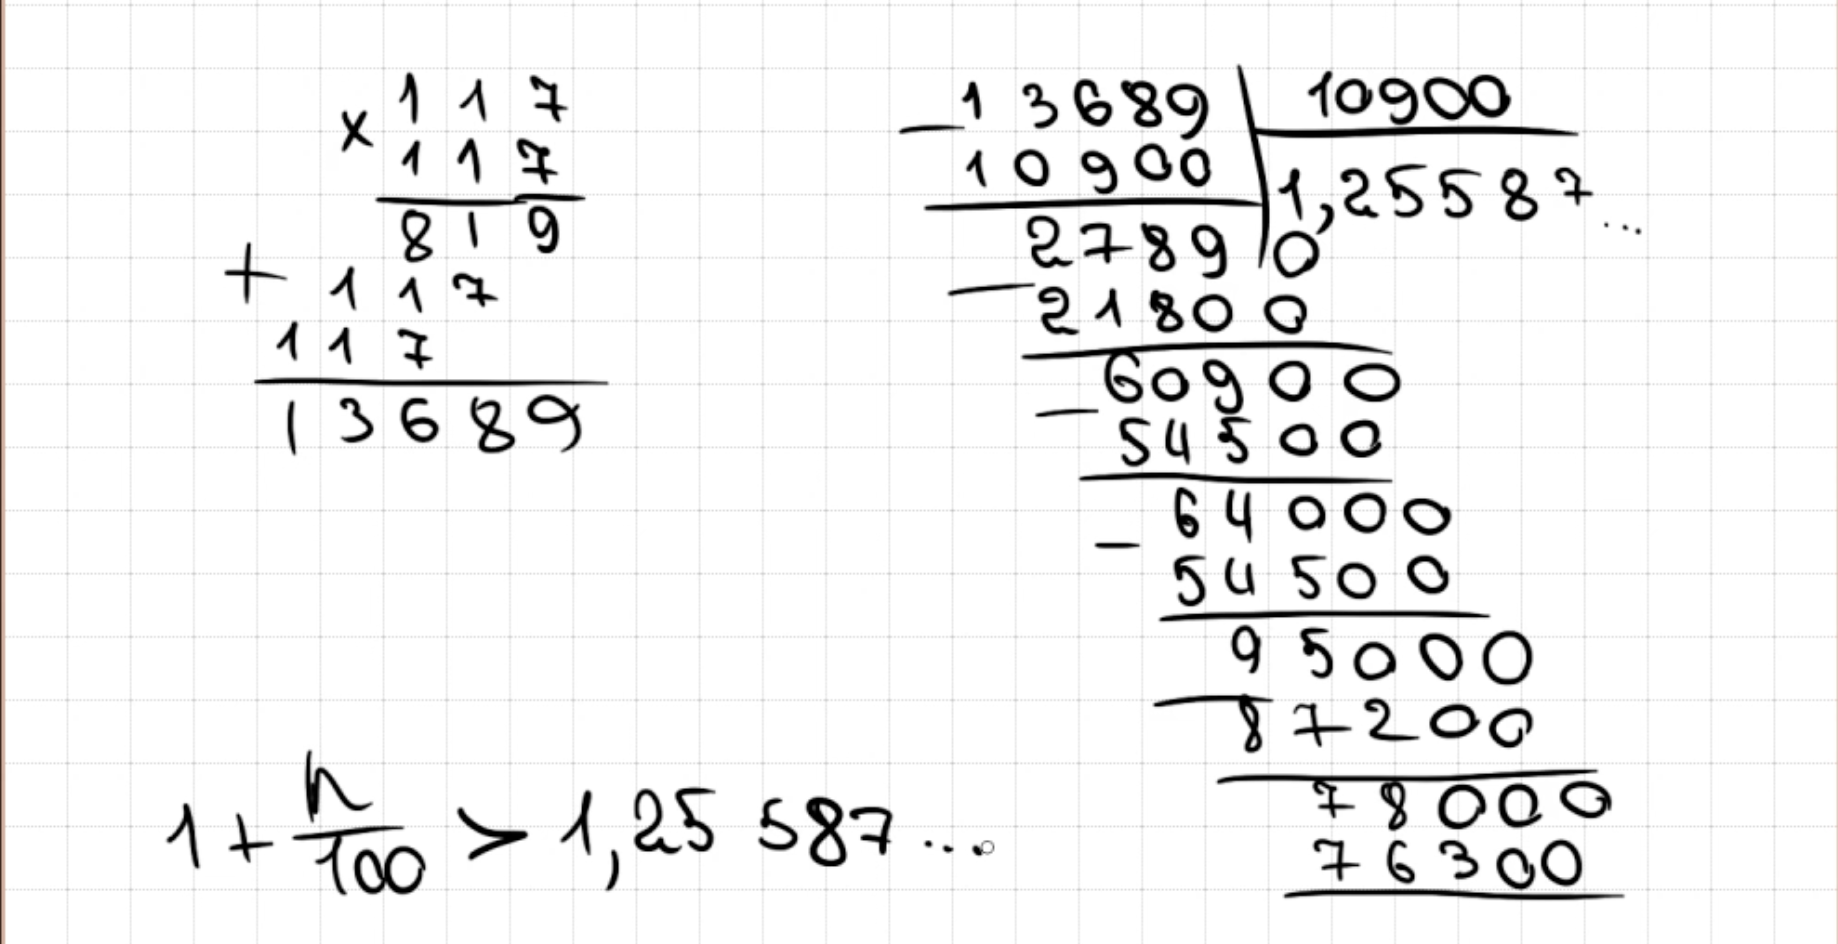 × 117
117
819
+ 117
117
13689
− 13689 | 10900
10900 | 1,25587...
27890
− 21800
− 60900
54500
− 64000
54500
− 95000
87200
78000
76300
1 + n/100 > 1,25587...